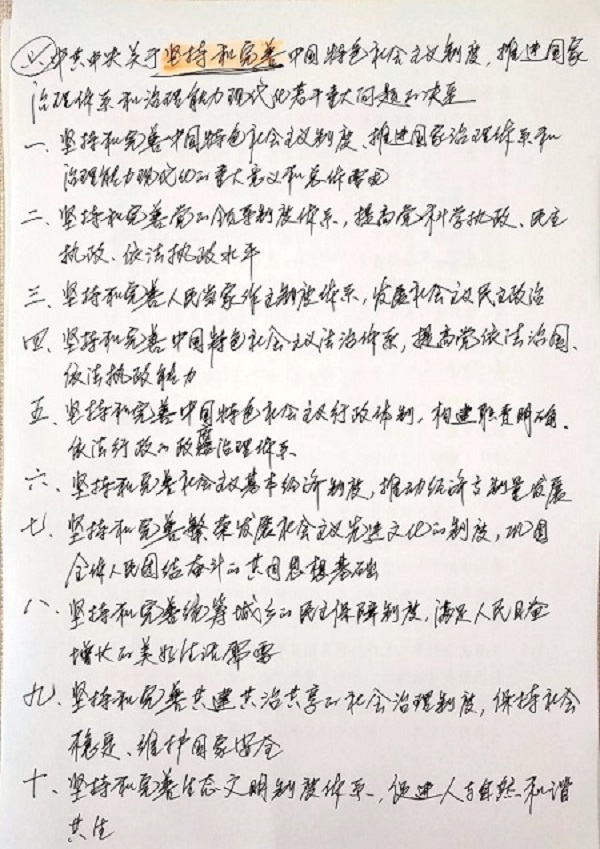 六、中共中央关于坚持和完善中国特色社会主义制度，推进国家
治理体系和治理能力现代化若干重大问题的决定
一、坚持和完善中国特色社会主义制度、推进国家治理体系和
治理能力现代化的重大意义和总体要求
二、坚持和完善党的领导制度体系，提高党科学执政、民主
执政、依法执政水平
三、坚持和完善人民当家作主制度体系，发展社会主义民主政治
四、坚持和完善中国特色社会主义法治体系，提高党依法治国、
依法执政能力
五、坚持和完善中国特色社会主义行政体制，构建职责明确、
依法行政的政府治理体系
六、坚持和完善社会主义基本经济制度，推动经济高质量发展
七、坚持和完善繁荣发展社会主义先进文化的制度，巩固
全体人民团结奋斗的共同思想基础
八、坚持和完善统筹城乡的民生保障制度，满足人民日益
增长的美好生活需要
九、坚持和完善共建共治共享的社会治理制度，保持社会
稳定、维护国家安全
十、坚持和完善生态文明制度体系，促进人与自然和谐
共生